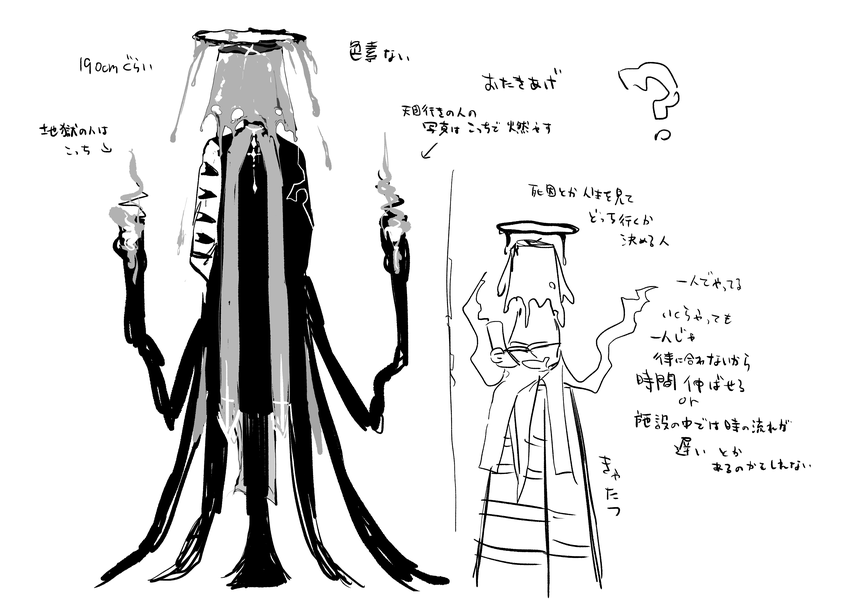 190cmぐらい
色素ない
地獄の人は
こっち
天国行きの人の
写真はこっちで燃やす
おたきあげ
?
死因とか人生を見て
どっち行くか
決める人
一人でやってる
いくらやっても
一人じゃ
間に合わないから
時間伸ばせる
or
施設の中では時の流れが
遅いとか
あるのかもしれない
きゃたつ